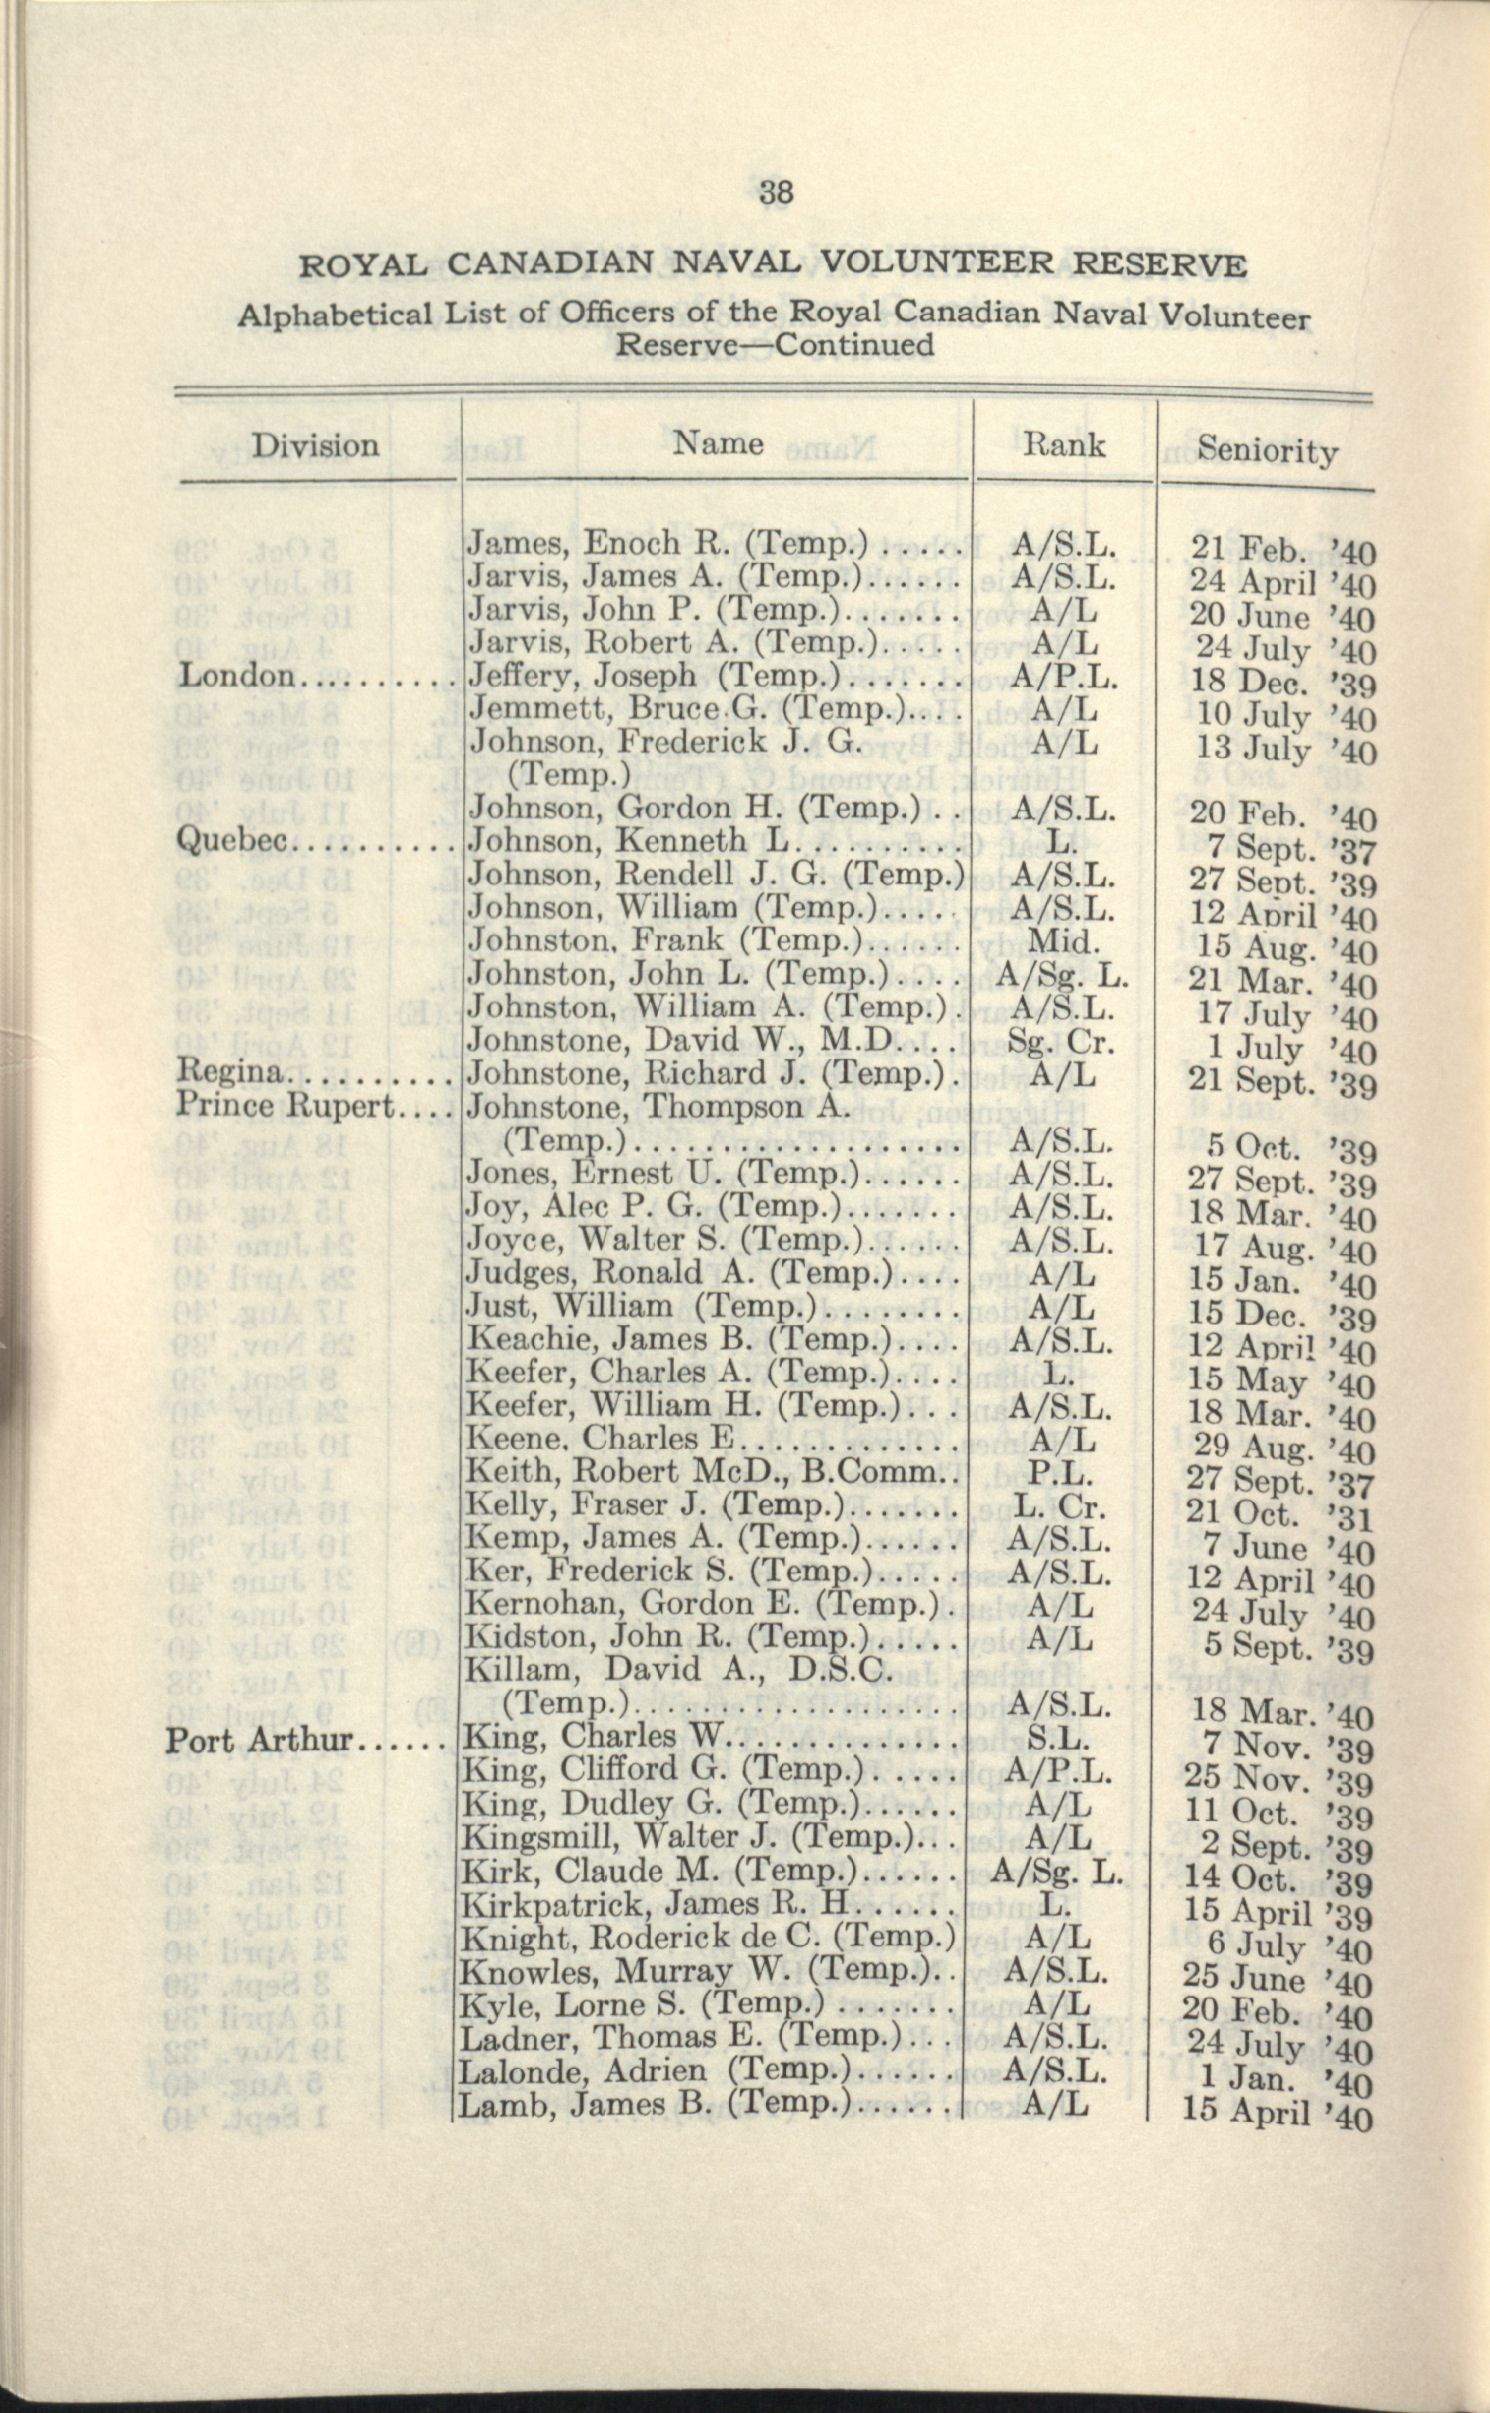 38
ROYAL CANADIAN NAVAL VOLUNTEER RESERVE
Alphabetical List of Officers of the Royal Canadian Naval Volunteer
Reserve—Continued
Division Name Rank Seniority
James, Enoch R. (Temp.) ..... A/S.L. 21 Feb. ’40
Jarvis, James A. (Temp.)...... A/S.L. 24 April ’40
Jarvis, John P. (Temp.)....... A/L 20 June ’40
Jarvis, Robert A. (Temp.)..... A/L 24 July ’40
London.......... Jeffery, Joseph (Temp.)....... A/P.L. 18 Dec. ’39
Jemmett, Bruce G. (Temp.).... A/L 10 July ’40
Johnson, Frederick J. G. A/L 13 July ’40
(Temp.)
Johnson, Gordon H. (Temp.) .. A/S.L. 20 Feb. ’40
Quebec.......... Johnson, Kenneth L.......... L. 7 Sept. ’37
Johnson, Rendell J. G. (Temp.) A/S.L. 27 Sept. ’39
Johnson, William (Temp.)..... A/S.L. 12 April ’40
Johnston, Frank (Temp.)...... Mid. 15 Aug. ’40
Johnston, John L. (Temp.).... A/Sg. L. 21 Mar. ’40
Johnston, William A. (Temp.). A/S.L. 17 July ’40
Johnstone, David W., M.D.... Sg. Cr. 1 July ’40
Regina.......... Johnstone, Richard J. (Temp.). A/L 21 Sept. ’39
Prince Rupert.... Johnstone, Thompson A.
(Temp.).................... A/S.L. 5 Oct. ’39
Jones, Ernest U. (Temp.)...... A/S.L. 27 Sept. ’39
Joy, Alec P. G. (Temp.)....... A/S.L. 18 Mar. ’40
Joyce, Walter S. (Temp.)...... A/S.L. 17 Aug. ’40
Judges, Ronald A. (Temp.).... A/L 15 Jan. ’40
Just, William (Temp.)........ A/L 15 Dec. ’39
Keachie, James B. (Temp.).... A/S.L. 12 April ’40
Keefer, Charles A. (Temp.).... L. 15 May ’40
Keefer, William H. (Temp.)... A/S.L. 18 Mar. ’40
Keene, Charles E............. A/L 29 Aug. ’40
Keith, Robert McD., B.Comm.. P.L. 27 Sept. ’37
Kelly, Fraser J. (Temp.)....... L. Cr. 21 Oct. ’31
Kemp, James A. (Temp.)...... A/S.L. 7 June ’40
Ker, Frederick S. (Temp.)..... A/S.L. 12 April ’40
Kernohan, Gordon E. (Temp.). A/L 24 July ’40
Kidston, John R. (Temp.)..... A/L 5 Sept. ’39
Killam, David A., D.S.C.
(Temp.).................... A/S.L. 18 Mar. ’40
Port Arthur...... King, Charles W.............. S.L. 7 Nov. ’39
King, Clifford G. (Temp.)...... A/P.L. 25 Nov. ’39
King, Dudley G. (Temp.)...... A/L 11 Oct. ’39
Kingsmill, Walter J. (Temp.)... A/L 2 Sept. ’39
Kirk, Claude M. (Temp.)...... A/Sg. L. 14 Oct. ’39
Kirkpatrick, James R. H...... L. 15 April ’39
Knight, Roderick de C. (Temp.) A/L 6 July ’40
Knowles, Murray W. (Temp.).. A/S.L. 25 June ’40
Kyle, Lorne S. (Temp.) ....... A/L 20 Feb. ’40
Ladner, Thomas E. (Temp.)... A/S.L. 24 July ’40
Lalonde, Adrien (Temp.)...... A/S.L. 1 Jan. ’40
Lamb, James B. (Temp.)...... A/L 15 April ’40